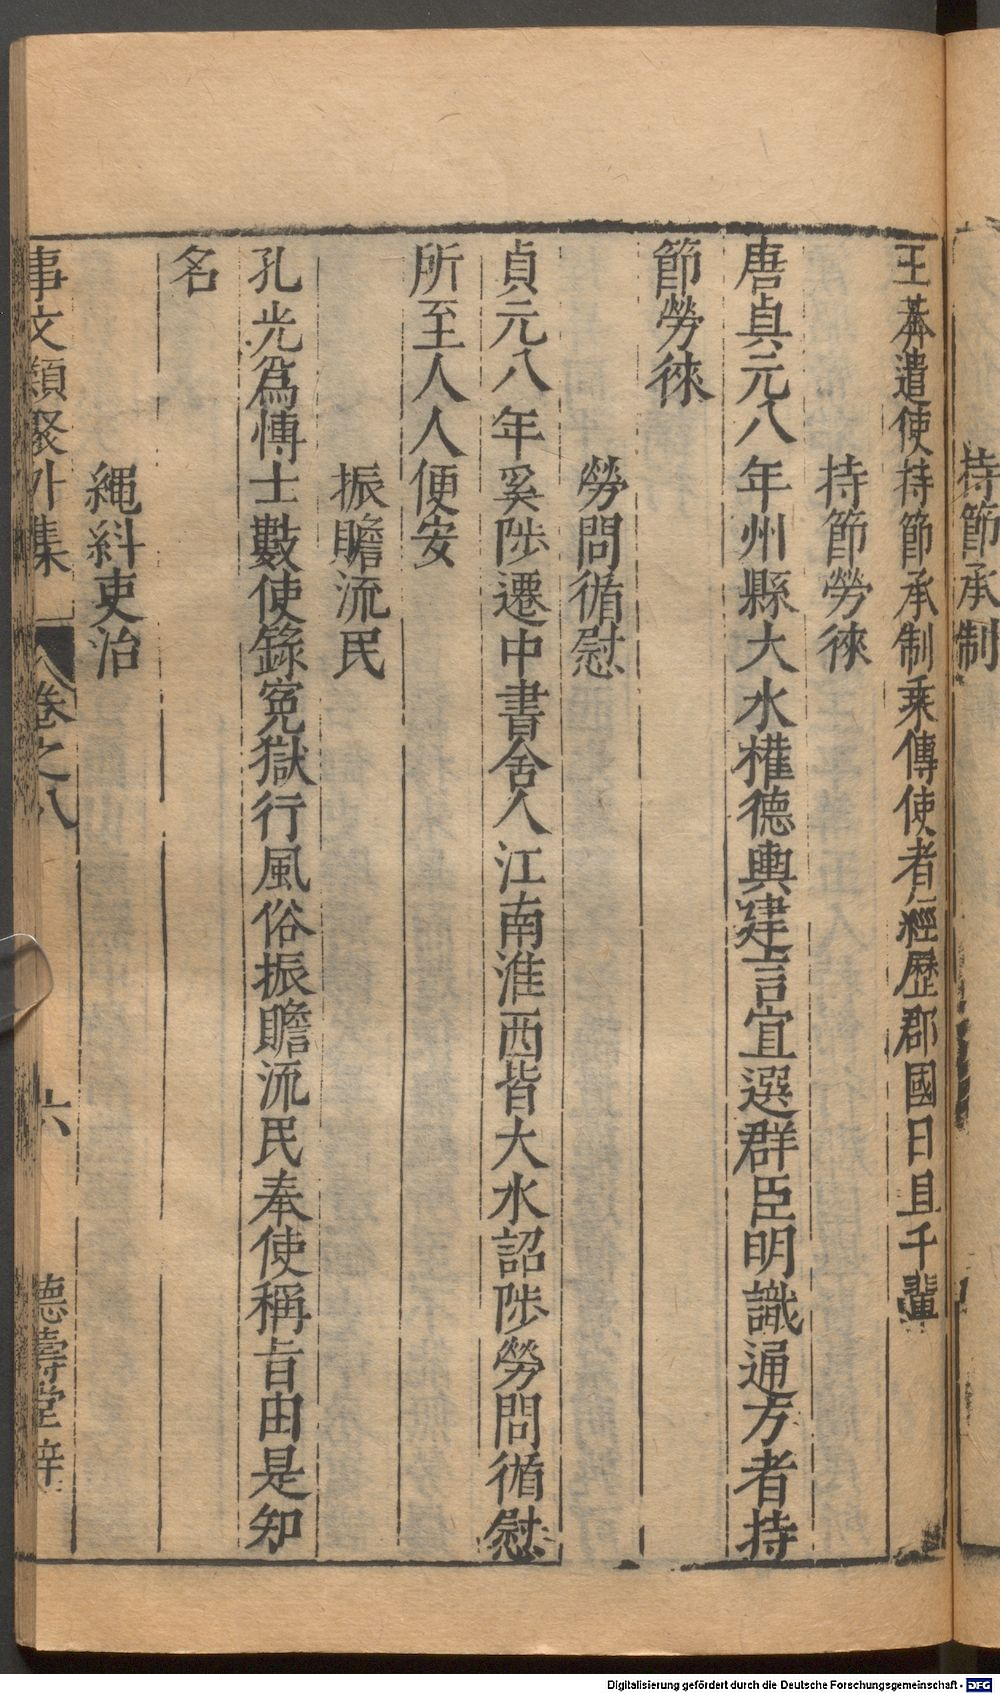 持節承制
王莽遣使持節承制乘傳使者經歷郡國日且千輩
持節勞徠
唐貞元八年州縣大水權德輿建言宜選群臣明識通方者持
節勞徠
勞問循慰
貞元八年奚陟遷中書舍人江南淮西皆大水詔陟勞問循慰
所至人人便安
振贍流民
孔光爲博士數使錄寃獄行風俗振贍流民奉使稱旨由是知
名
繩糾吏治
事文類聚外集 卷之八 六 德壽堂梓
Digitalisierung gefördert durch die Deutsche Forschungsgemeinschaft - DFG